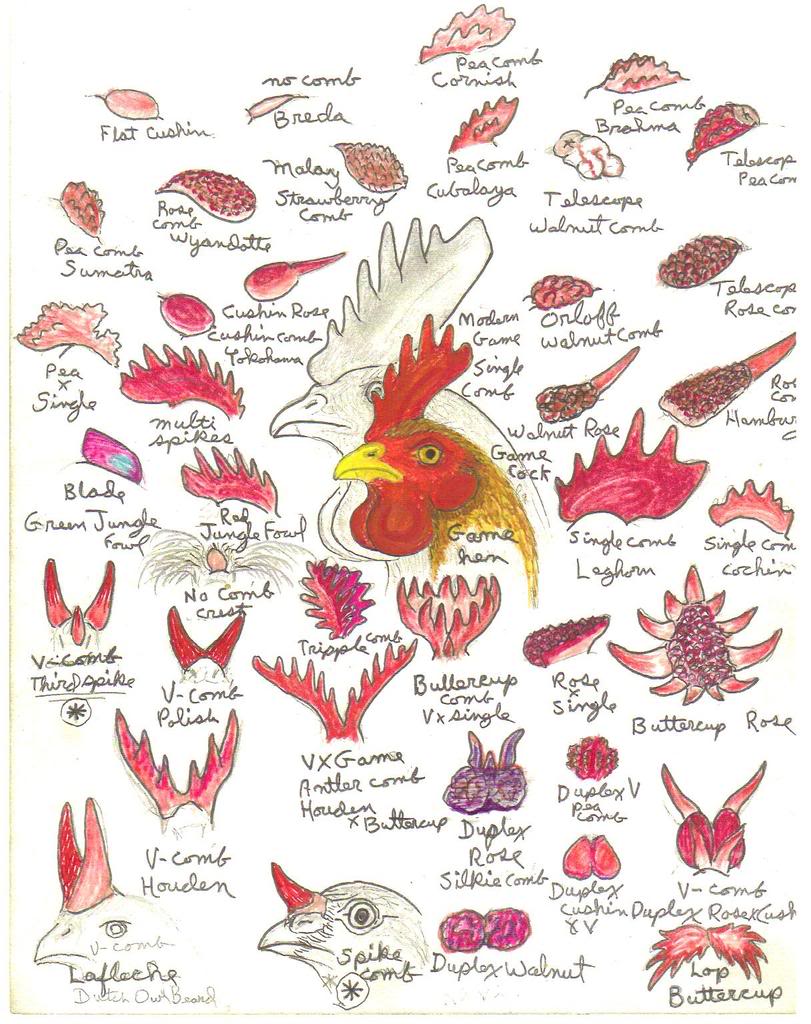 Pea comb
Cornish
no comb
Breda
Flat Cushin
Pea comb
Brahma
Telescop
Pea com
Pea comb
Cubalaya
Malay
Strawberry
Comb
Telescope
Walnut Comb
Rose
comb
Wyandotte
Pea comb
Sumatra
Telescop
Rose con
Cushin Rose
Cushin comb
Yokohama
Orloff
Walnut Comb
Modern
Game
Single
Comb
Pea
x
Single
multi
spikes
Walnut Rose
Ros
Com
Hamburg
Game
Cock
Blade
Green Jungle
Fowl
Red
Jungle Fowl
Game
hen
Single comb
Leghorn
Single com
cochin
No Comb
crest
V-comb
Third spike
*
V-Comb
Polish
Tripple comb
Buttercup
comb
V x single
Rose
x
Single
Buttercup Rose
V X Game
Antler comb
Houden
x Buttercup
Duplex V
Pea
comb
Duplex
Rose
Silkie comb
V-comb
Houden
Duplex
cushin
X V
V-comb
Duplex Rose x Cush
V-comb
Lafleche
Dutch Owl Beard
Spike
comb
*
*
Duplex Walnut
Lop
Buttercup